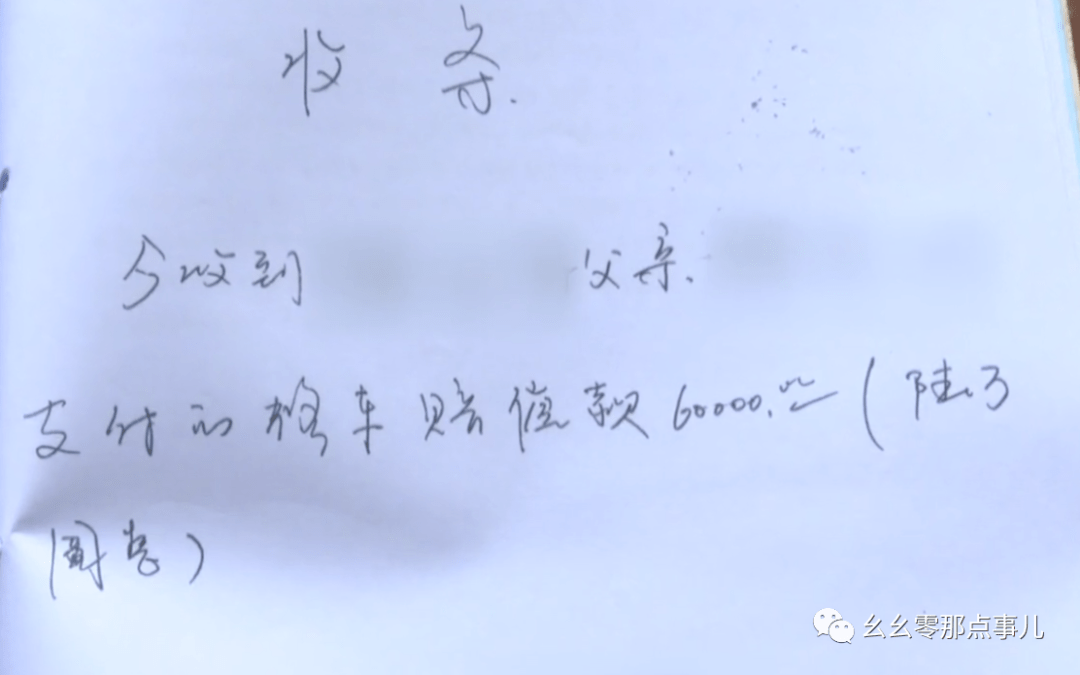 收 条
今收到 父亲.
支付的修车赔偿款60000.00(陆万
圆整)
幺幺零那点事儿